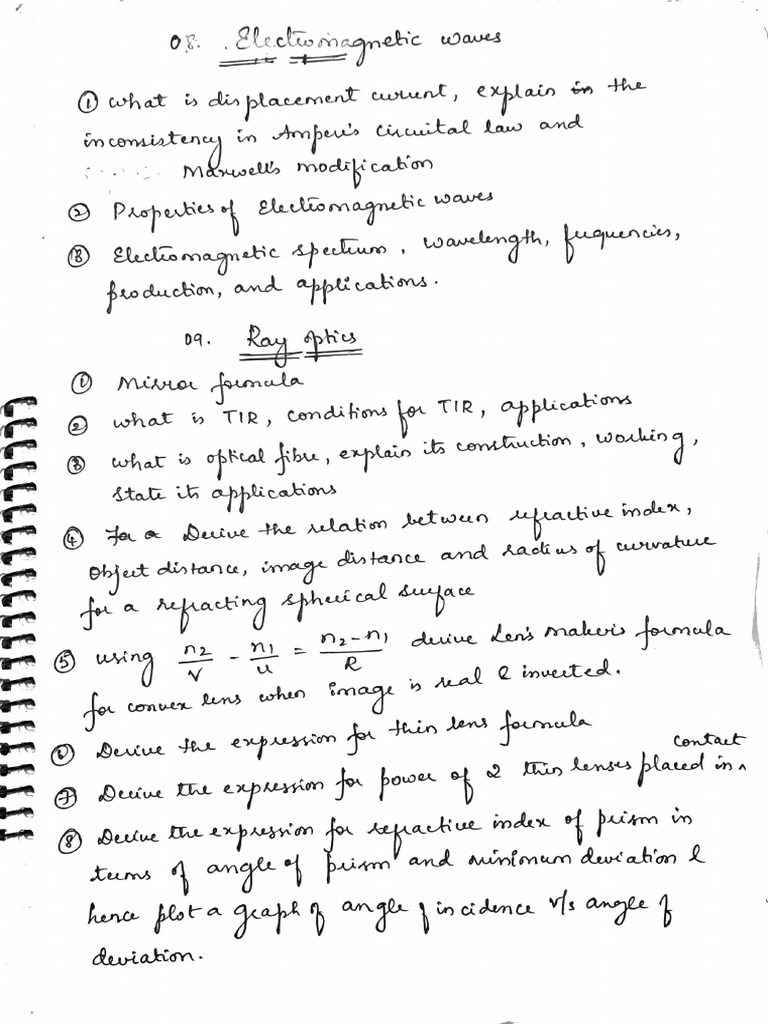 08. Electromagnetic waves
① What is displacement current, explain in the
inconsistency in Ampere's circuital law and
Maxwell's modification
② Properties of Electromagnetic waves
③ Electromagnetic spectrum, wavelength, frequencies,
production, and applications.
09. Ray optics
① Mirror formula
② What is TIR, conditions for TIR, applications
③ What is optical fibre, explain its construction, working,
state its applications
④ For a Derive the relation between refractive index,
object distance, image distance and radius of curvature
for a refracting spherical surface
⑤ Using n2/v - n1/u = n2-n1/R derive Len's maker's formula
for convex lens when image is real & inverted.
⑥ Derive the expression for thin lens formula
⑦ Derive the expression for power of 2 thin lenses placed in ^ contact
⑧ Derive the expression for refractive index of prism in
terms of angle of prism and minimum deviation &
hence plot a graph of angle of incidence v/s angle of
deviation.